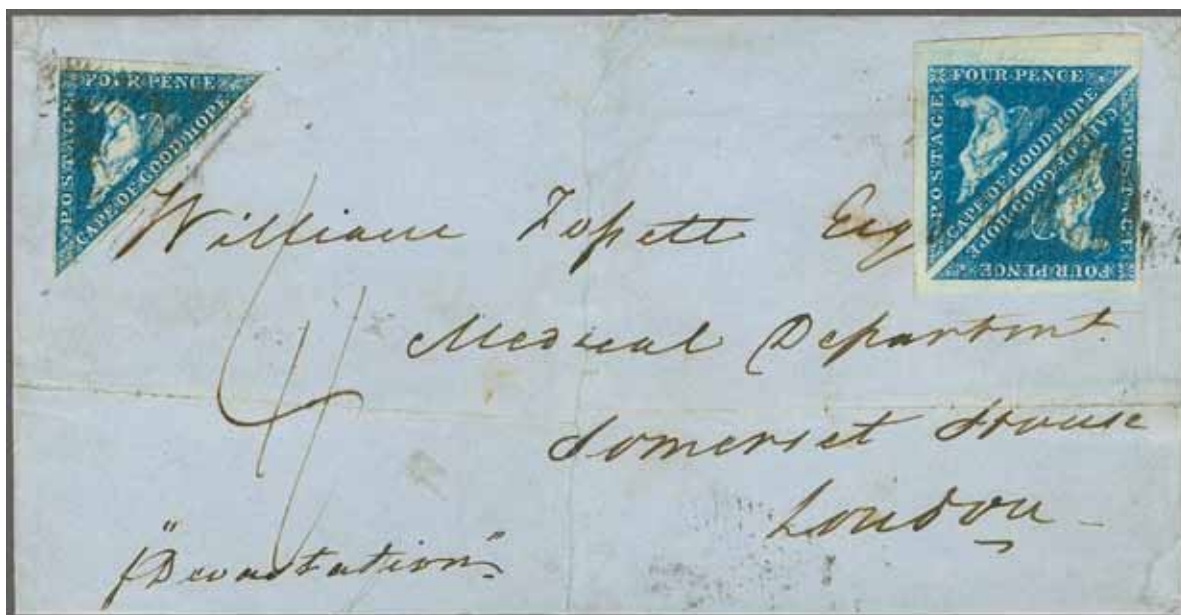 FOUR PENCE
POSTAGE
CAPE OF GOOD HOPE
FOUR PENCE
POSTAGE
CAPE OF GOOD HOPE
CAPE OF GOOD HOPE
POSTAGE
FOUR PENCE
William Esq
Medical Departmt.
Somerset House
London
"Devastation"